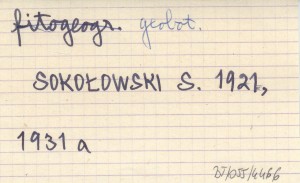 fitogeogr. geobot.
SOKOŁOWSKI S. 1921,
1931 a
BJ/055/4466